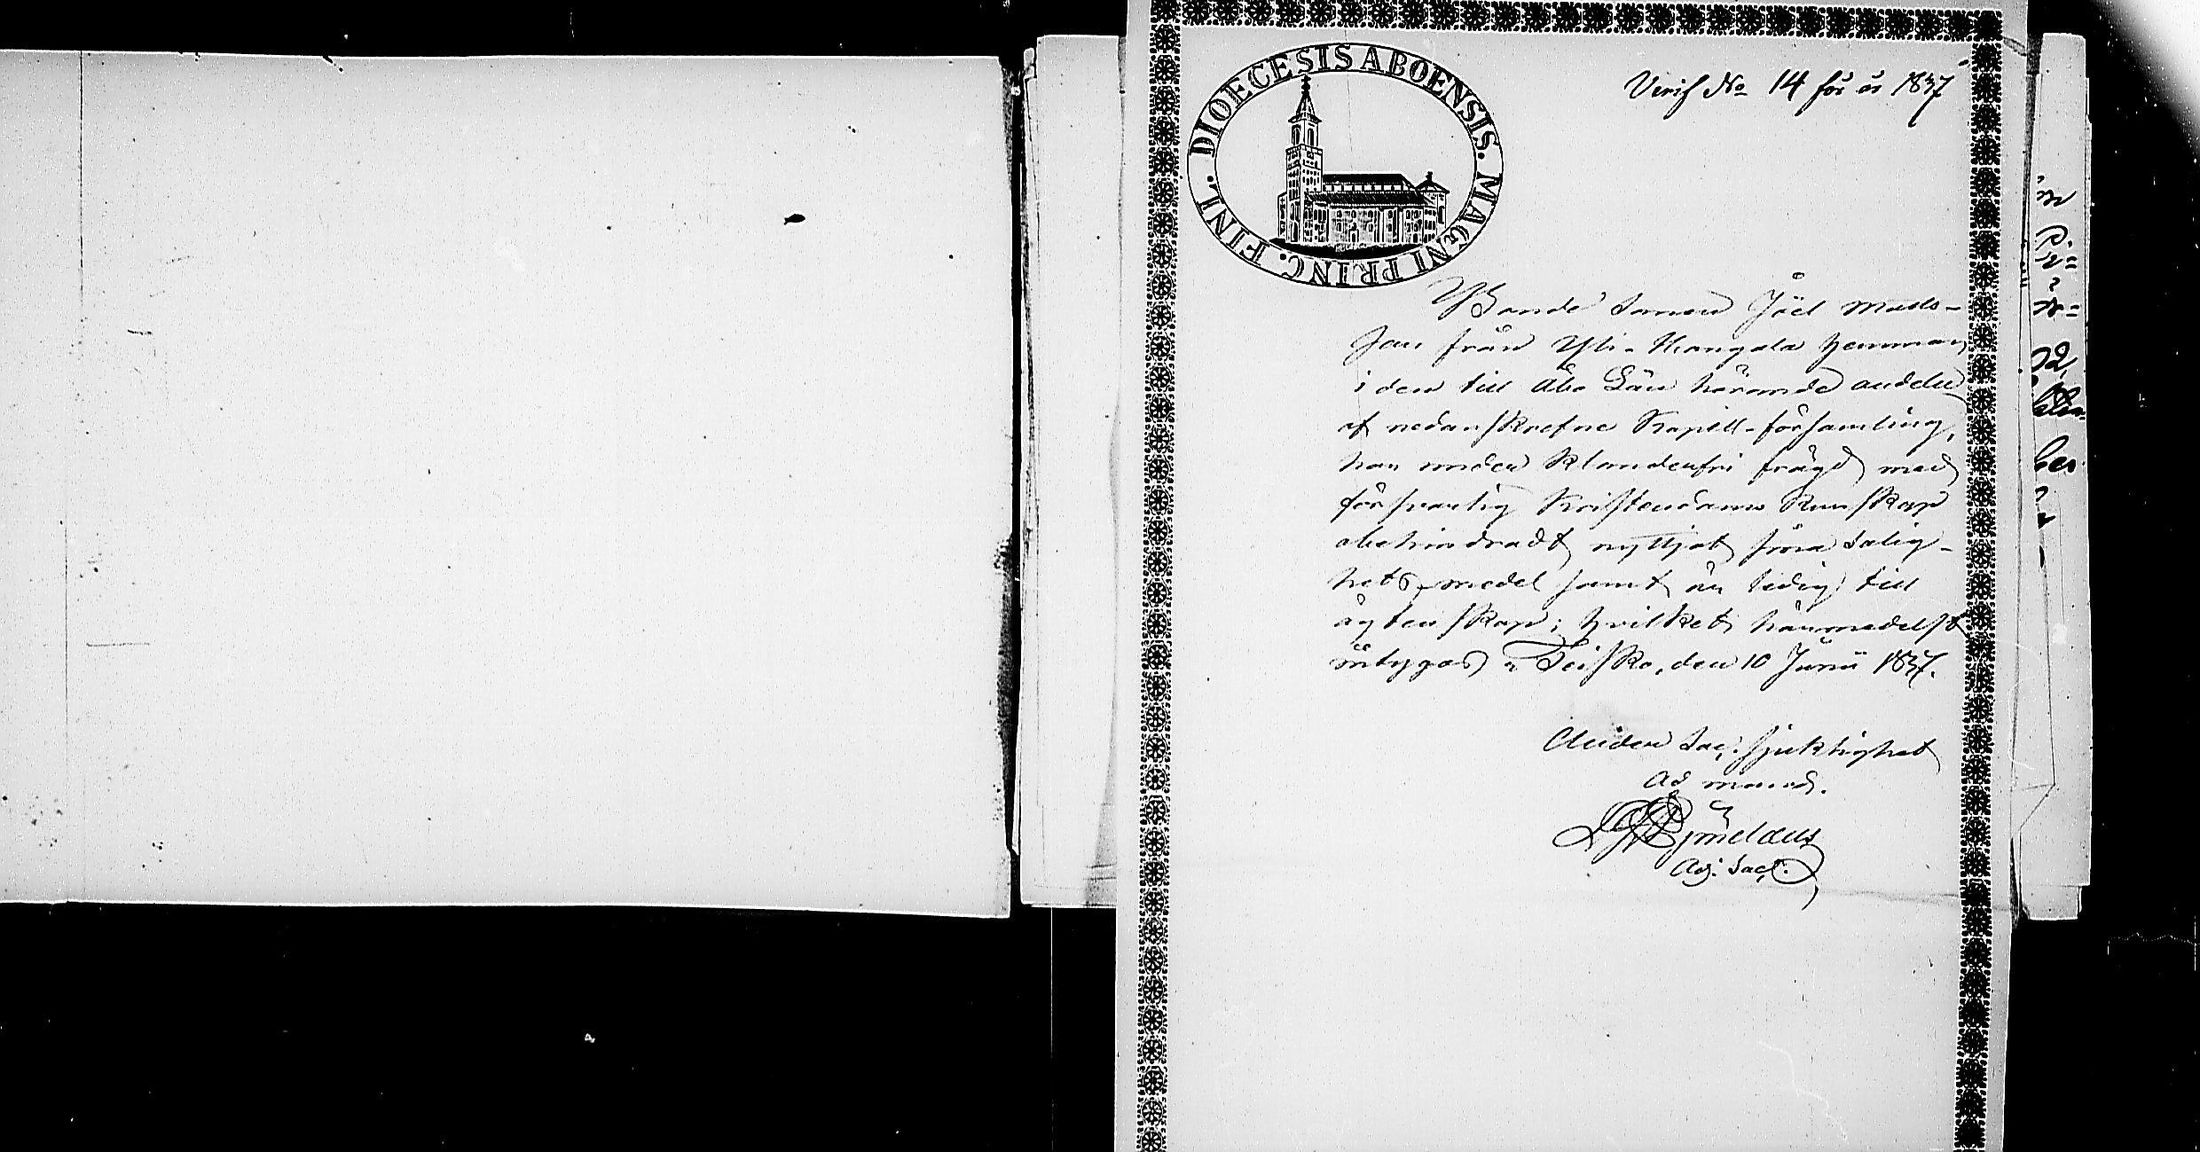 DIOECESIS ABOENSIS. MAGNI PRINC. FINL.
Verif No 14 för år 1837
Bonde Sonen Joel Matts-
son från Yli-Kangala hemman,
i den till Åbo Län hörande andelen
af nedanskrefne Kapell-församling,
har under klanderfri frägd med
försvarlig Kristendoms Kunskap
obehindradt nyttjat sina Salig-
hets medel samt är ledig till
ägtenskap; hvilket härmedelst
intygas. Teisko, den 10 Junii 1837.
Under Sac: sjuklighet
ad mand.
Björnelaeus
Adj: Sac: